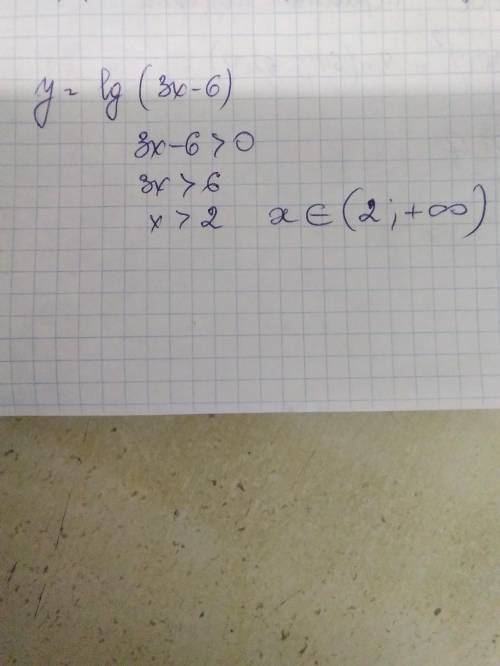 y = lg (3x-6)
3x-6 > 0
3x > 6
x > 2 x ∈ (2; +∞)